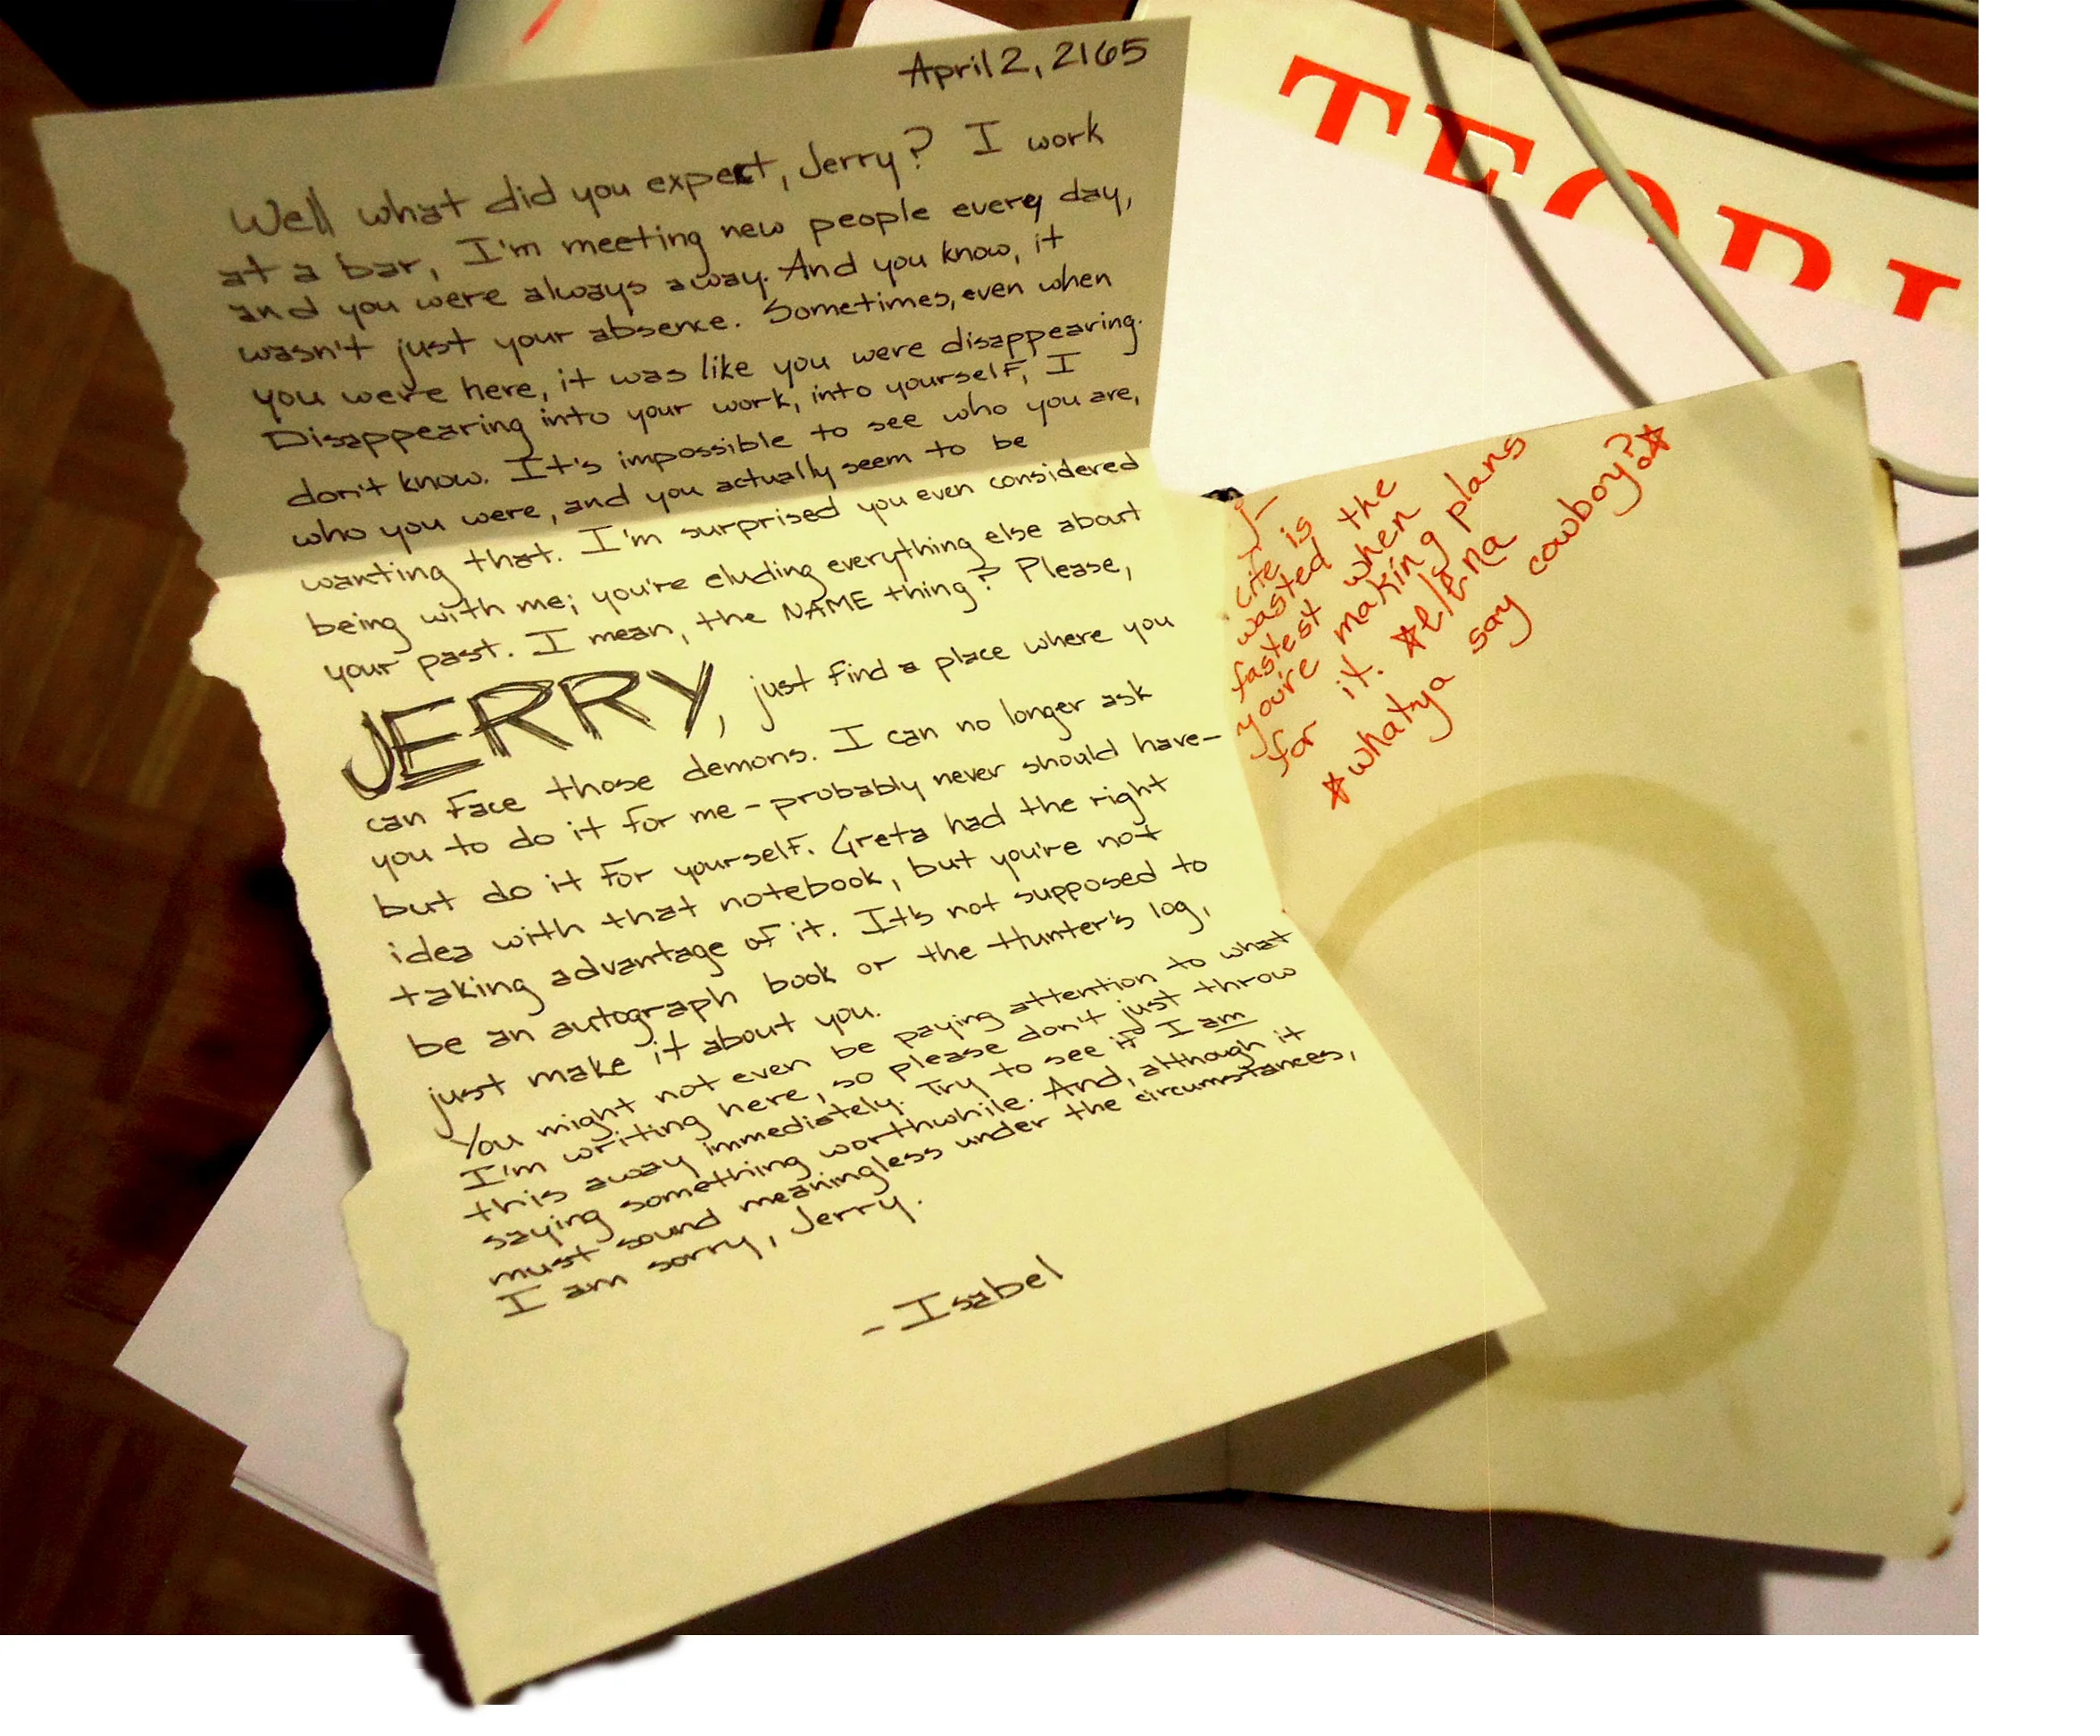 April 2, 2165
Well what did you expect, Jerry? I work
at a bar, I'm meeting new people every day,
and you were always away. And you know, it
wasn't just your absence. Sometimes, even when
you were here, it was like you were disappearing.
Disappearing into your work, into yourself, I
don't know. It's impossible to see who you are,
who you were, and you actually seem to be
wanting that. I'm surprised you even considered
being with me; you're eluding everything else about
your past. I mean, the NAME thing? Please,
JERRY, just find a place where you
can face those demons. I can no longer ask
you to do it for me - probably never should have -
but do it for yourself. Greta had the right
idea with that notebook, but you're not
taking advantage of it. It's not supposed to
be an autograph book or the Hunter's log,
just make it about you.
You might not even be paying attention to what
I'm writing here, so please don't just throw
this away immediately. Try to see if I am
saying something worthwhile. And, although it
must sound meaningless under the circumstances,
I am sorry, Jerry.
- Isabel
TEORI
J-
Life is
wasted the
fastest when
you're making plans
for it. *Elena
*whatya say cowboy?*